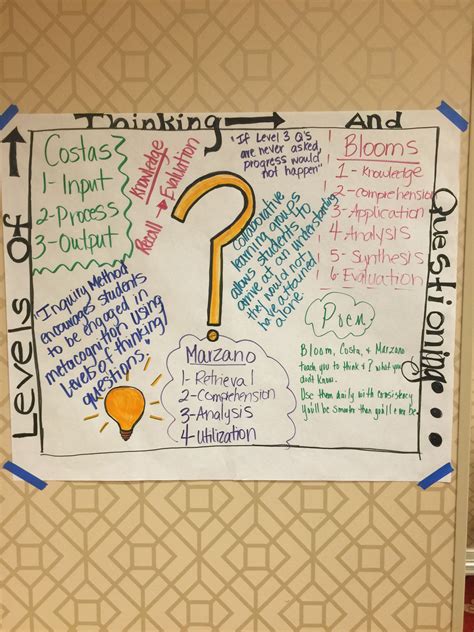 Levels of
Thinking
And
Questioning...
Costas
1- Input
2- Process
3- Output
Knowledge
Recall → Evaluation
"If Level 3 Q's
are never asked,
progress would
not happen"
Blooms
1- Knowledge
2- Comprehension
3- Application
4- Analysis
5- Synthesis
6- Evaluation
collaborative
learning groups
allows students to
arrive at an understanding
they would not
have attained
alone.
"Inquiry Method
encourages students
to be engaged in
metacognition using
levels of thinking/
questions."
Marzano
1- Retrieval
2- Comprehension
3- Analysis
4- Utilization
Poem
Bloom, Costa, & Marzano
teach you to think & what you
don't know.
Use them daily with consistency
You'll be smarter than you'll be